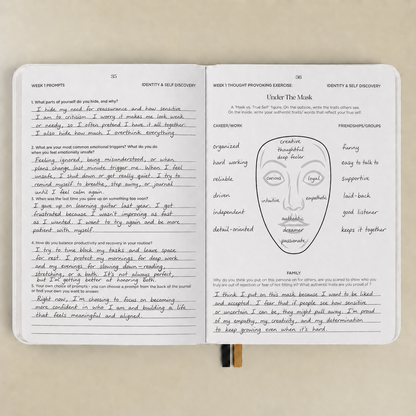 35
WEEK 1 PROMPTS
IDENTITY & SELF DISCOVERY
1. What parts of yourself do you hide, and why?
I hide my need for reassurance and how sensitive
I am to criticism. I worry it makes me look weak
or needy, so I often pretend I have it all together.
I also hide how much I overthink everything.
2. What are your most common emotional triggers? What do you do
when you feel emotionally unsafe?
Feeling ignored, being misunderstood, or when
plans change last minute trigger me. When I feel
unsafe, I shut down or get really quiet. I try to
remind myself to breathe, step away, or journal
until I feel calm again.
3. When was the last time you gave up on something too soon?
I gave up on learning guitar last year. I got
frustrated because I wasn't improving as fast
as I wanted. I want to try again and be more
patient with myself.
4. How do you balance productivity and recovery in your routine?
I try to time block my tasks and leave space
for rest. I protect my mornings for deep work
and my evenings for slowing down-reading,
stretching, or a bath. It's not always perfect,
but I'm getting better at honoring both.
5. Your own choice of prompts - you can choose a prompt from the back of the journal
or find your own you want to answer.
Right now, I'm choosing to focus on becoming
more confident in who I am and building a life
that feels meaningful and aligned.
36
WEEK 1 THOUGHT PROVOKING EXERCISE:
IDENTITY & SELF DISCOVERY
Under The Mask
A "Mask vs. True Self" Figure. On the outside, write the traits others see.
On the inside, write your authentic traits/ words that reflect your true self.
CAREER/WORK
FRIENDSHIPS/GROUPS
organized
hard working
reliable
driven
independent
detail-oriented
creative
thoughtful
deep feeler
curious
loyal
intuitive
empathetic
authentic
dreamer
passionate
funny
easy to talk to
supportive
laid-back
good listener
keeps it together
FAMILY
Why do you think you put on this persona for others, are you scared to show who you
truly are out of rejection or fear of not fitting in? What authentic traits are you proud of?
I think I put on this mask because I want to be liked
and accepted. I fear that if people see how sensitive
or uncertain I can be, they might pull away. I'm proud
of my empathy, my creativity, and my determination
to keep growing even when it's hard.